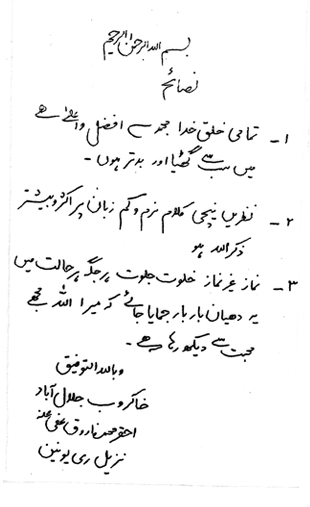 بسم اللہ الرحمٰن الرحیم
نصائح
۱ - تمامی خلق خدا مجھ سے افضل و اعلیٰ ہے
میں سب سے گھٹیا اور بدتر ہوں -
۲ - نظریں نیچی کلام نرم و کم زبان پر اکثر و بیشتر
ذکر اللہ ہو
۳ - نماز غیر نماز خلوت جلوت ہر جگہ ہر حالت میں
یہ دھیان بار بار جمایا جائے کہ میرا اللہ مجھے
محبت سے دیکھ رہا ہے -
وباللہ التوفیق
خاکروب جلال آباد
احقر محمد فاروق عفی عنہ
نزیل ری یونین